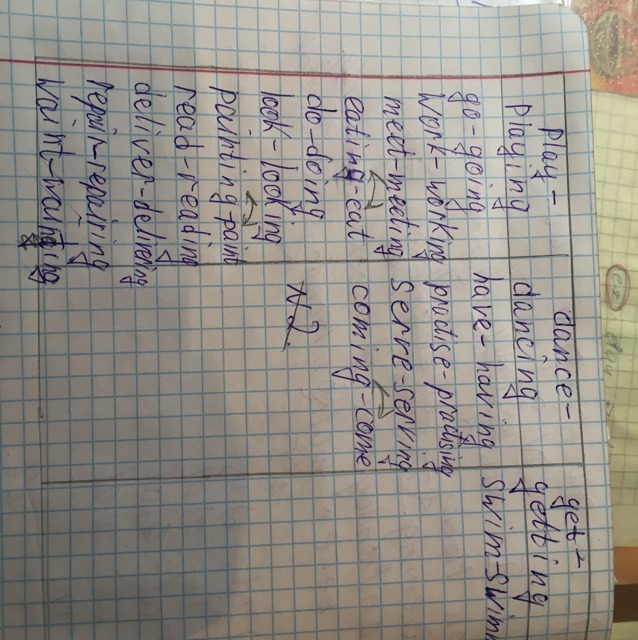 play -
playing
go-going
work-working
meet-meeting
eating-eat
do-doing
look-looking
painting-paint
read-reading
deliver-delivering
repair-repairing
dance-
dancing
have-having
practise-practising
serve-serving
coming-come
N2.
get-
getting
swim-swimm